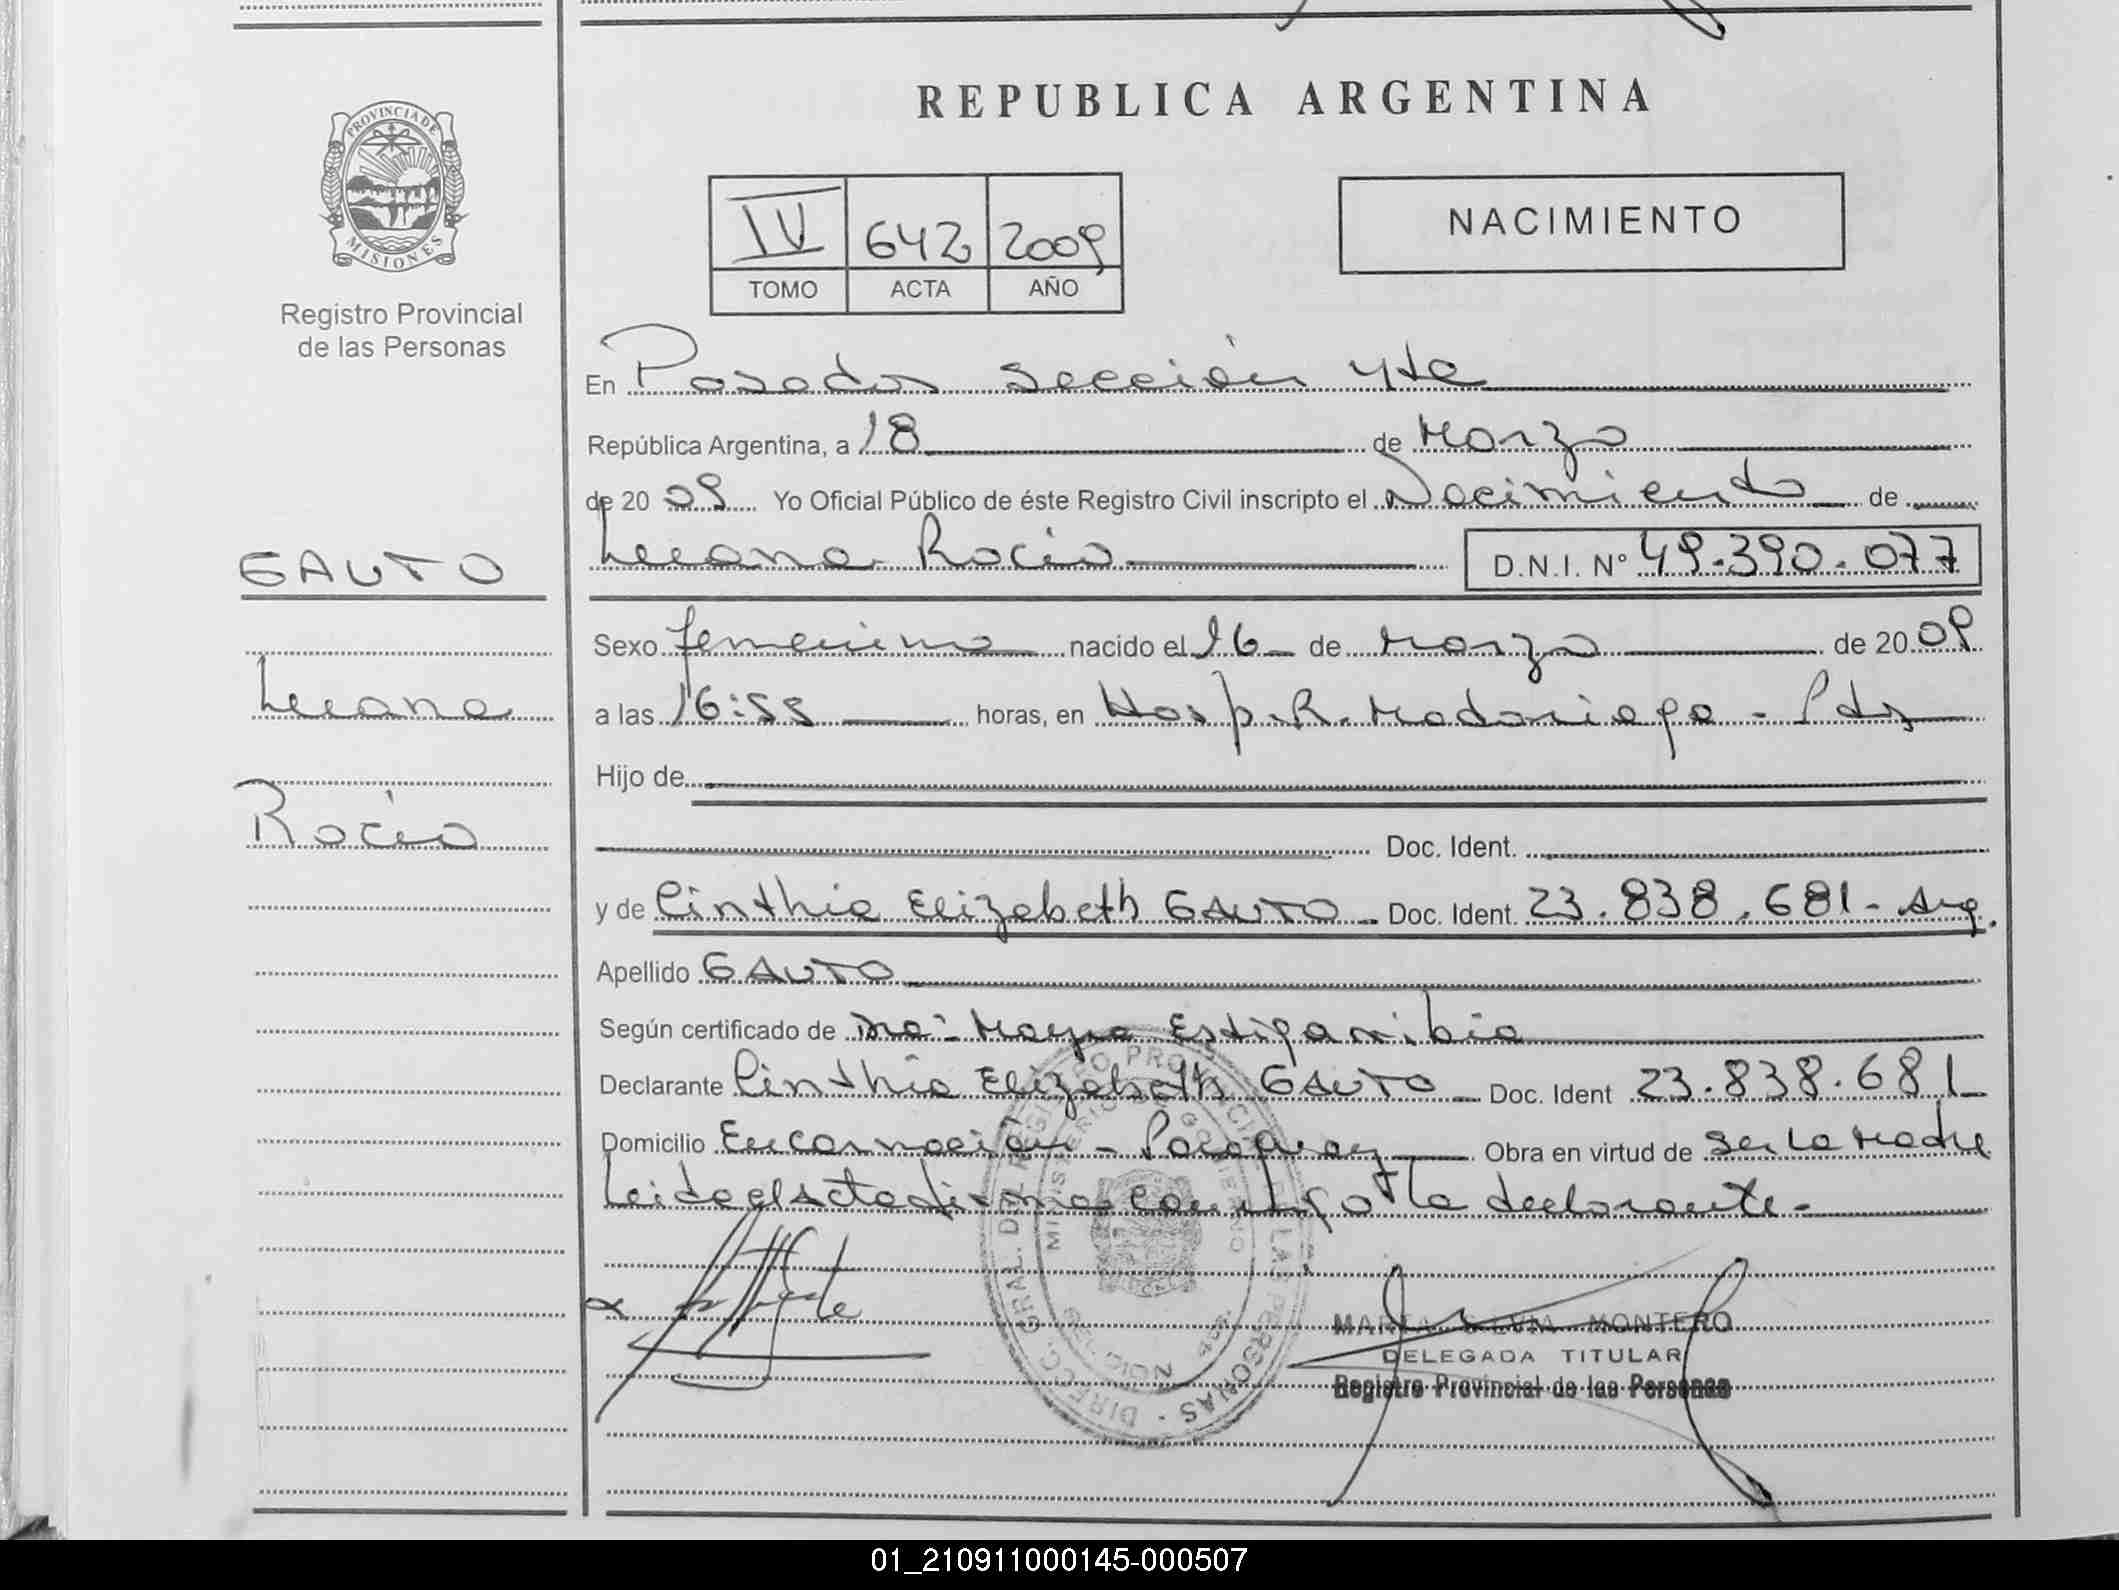 REPUBLICA ARGENTINA
PROVINCIA DE
MISIONES
Registro Provincial
de las Personas
IV 642 2009
TOMO ACTA AÑO
NACIMIENTO
En Posadas Sección 4ta
República Argentina, a 18 de Marzo
de 20 09 Yo Oficial Público de éste Registro Civil inscripto el Nacimiento de
Luana Rocío D.N.I. Nº 49.390.077
GAUTO
Luana
Rocío
Sexo femenino nacido el 16 de Marzo de 20 09
a las 16:55 horas, en Hosp. R. Madariaga - Pdas
Hijo de
Doc. Ident.
y de Cinthia Elizabeth GAUTO Doc. Ident. 23.838.681 - Arg.
Apellido GAUTO
Según certificado de Mayra Estigarribia
Declarante Cinthia Elizabeth GAUTO Doc. Ident 23.838.681
Domicilio Encarnación - Paraguay Obra en virtud de ser la Madre
Leida el Acta firma conmigo la declarante.-
DIREC. GRAL. DEL REGISTRO PROVINCIAL DE LAS PERSONAS
MINISTERIO DE GOBIERNO
MARTA SILVIA MONTERO
DELEGADA TITULAR
Registro Provincial de las Personas
01_210911000145-000507